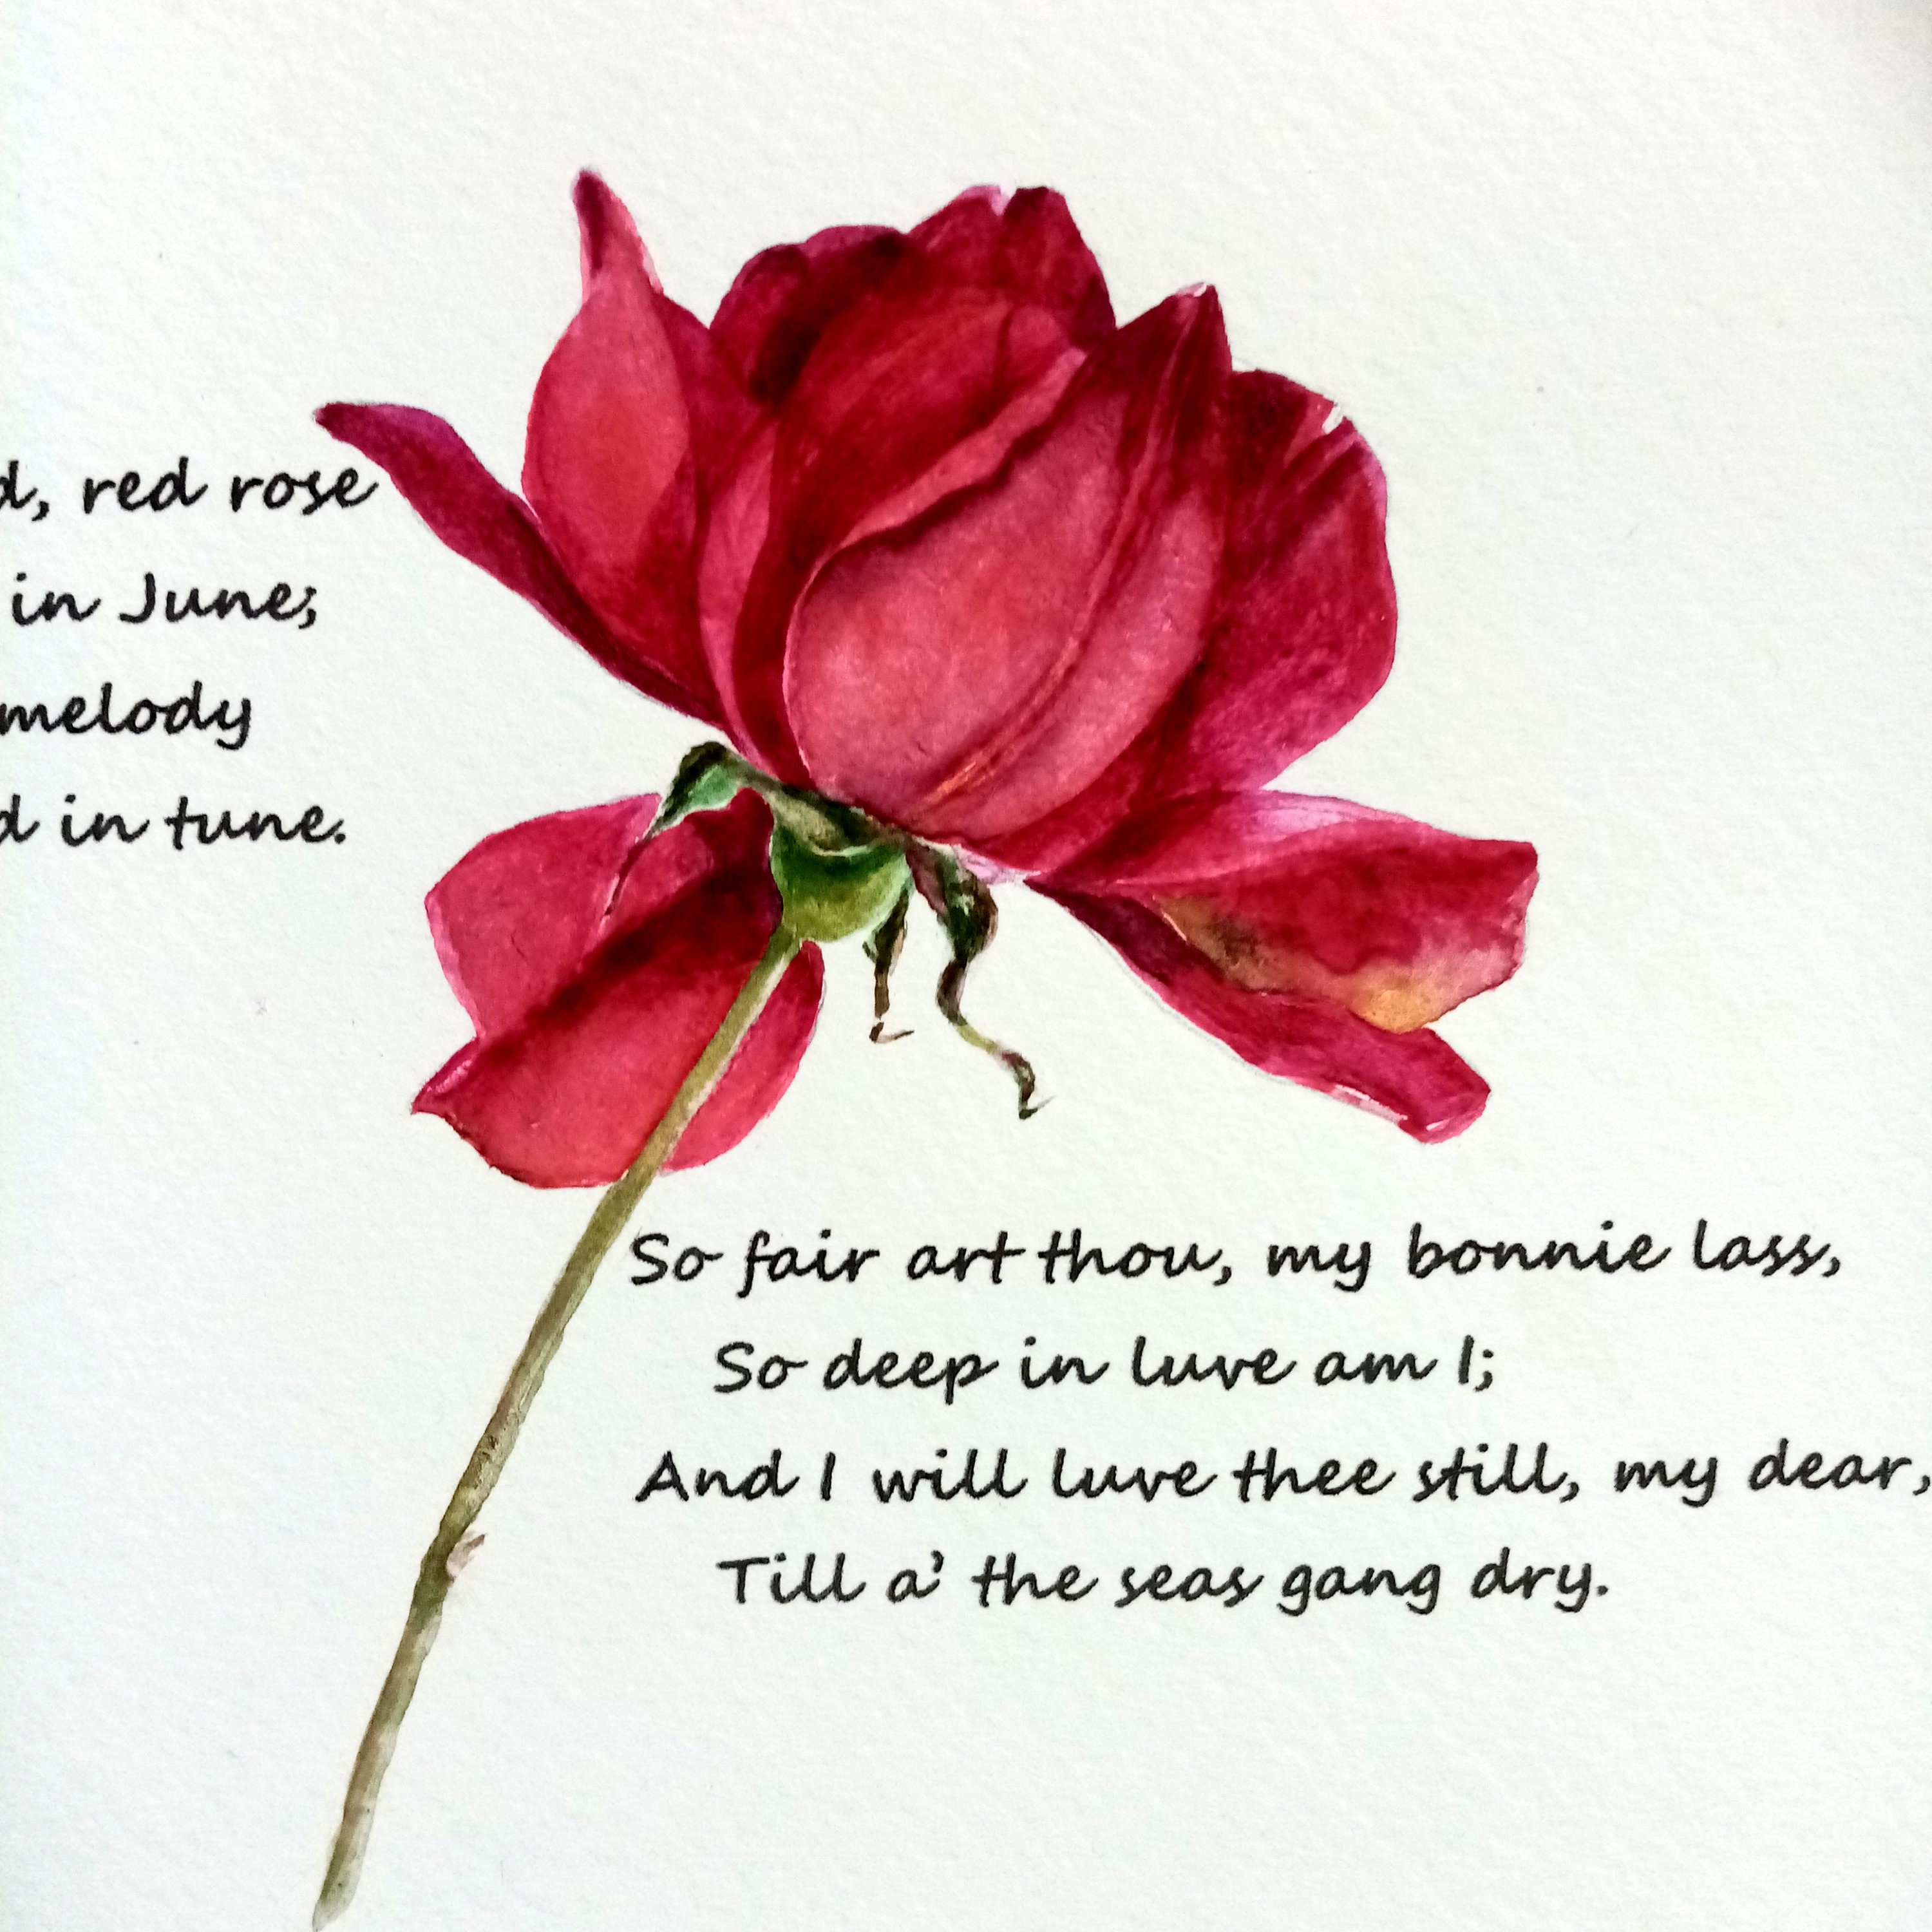 red rose
in June;
melody
in tune.
So fair art thou, my bonnie lass,
So deep in luve am I;
And I will luve thee still, my dear,
Till a' the seas gang dry.